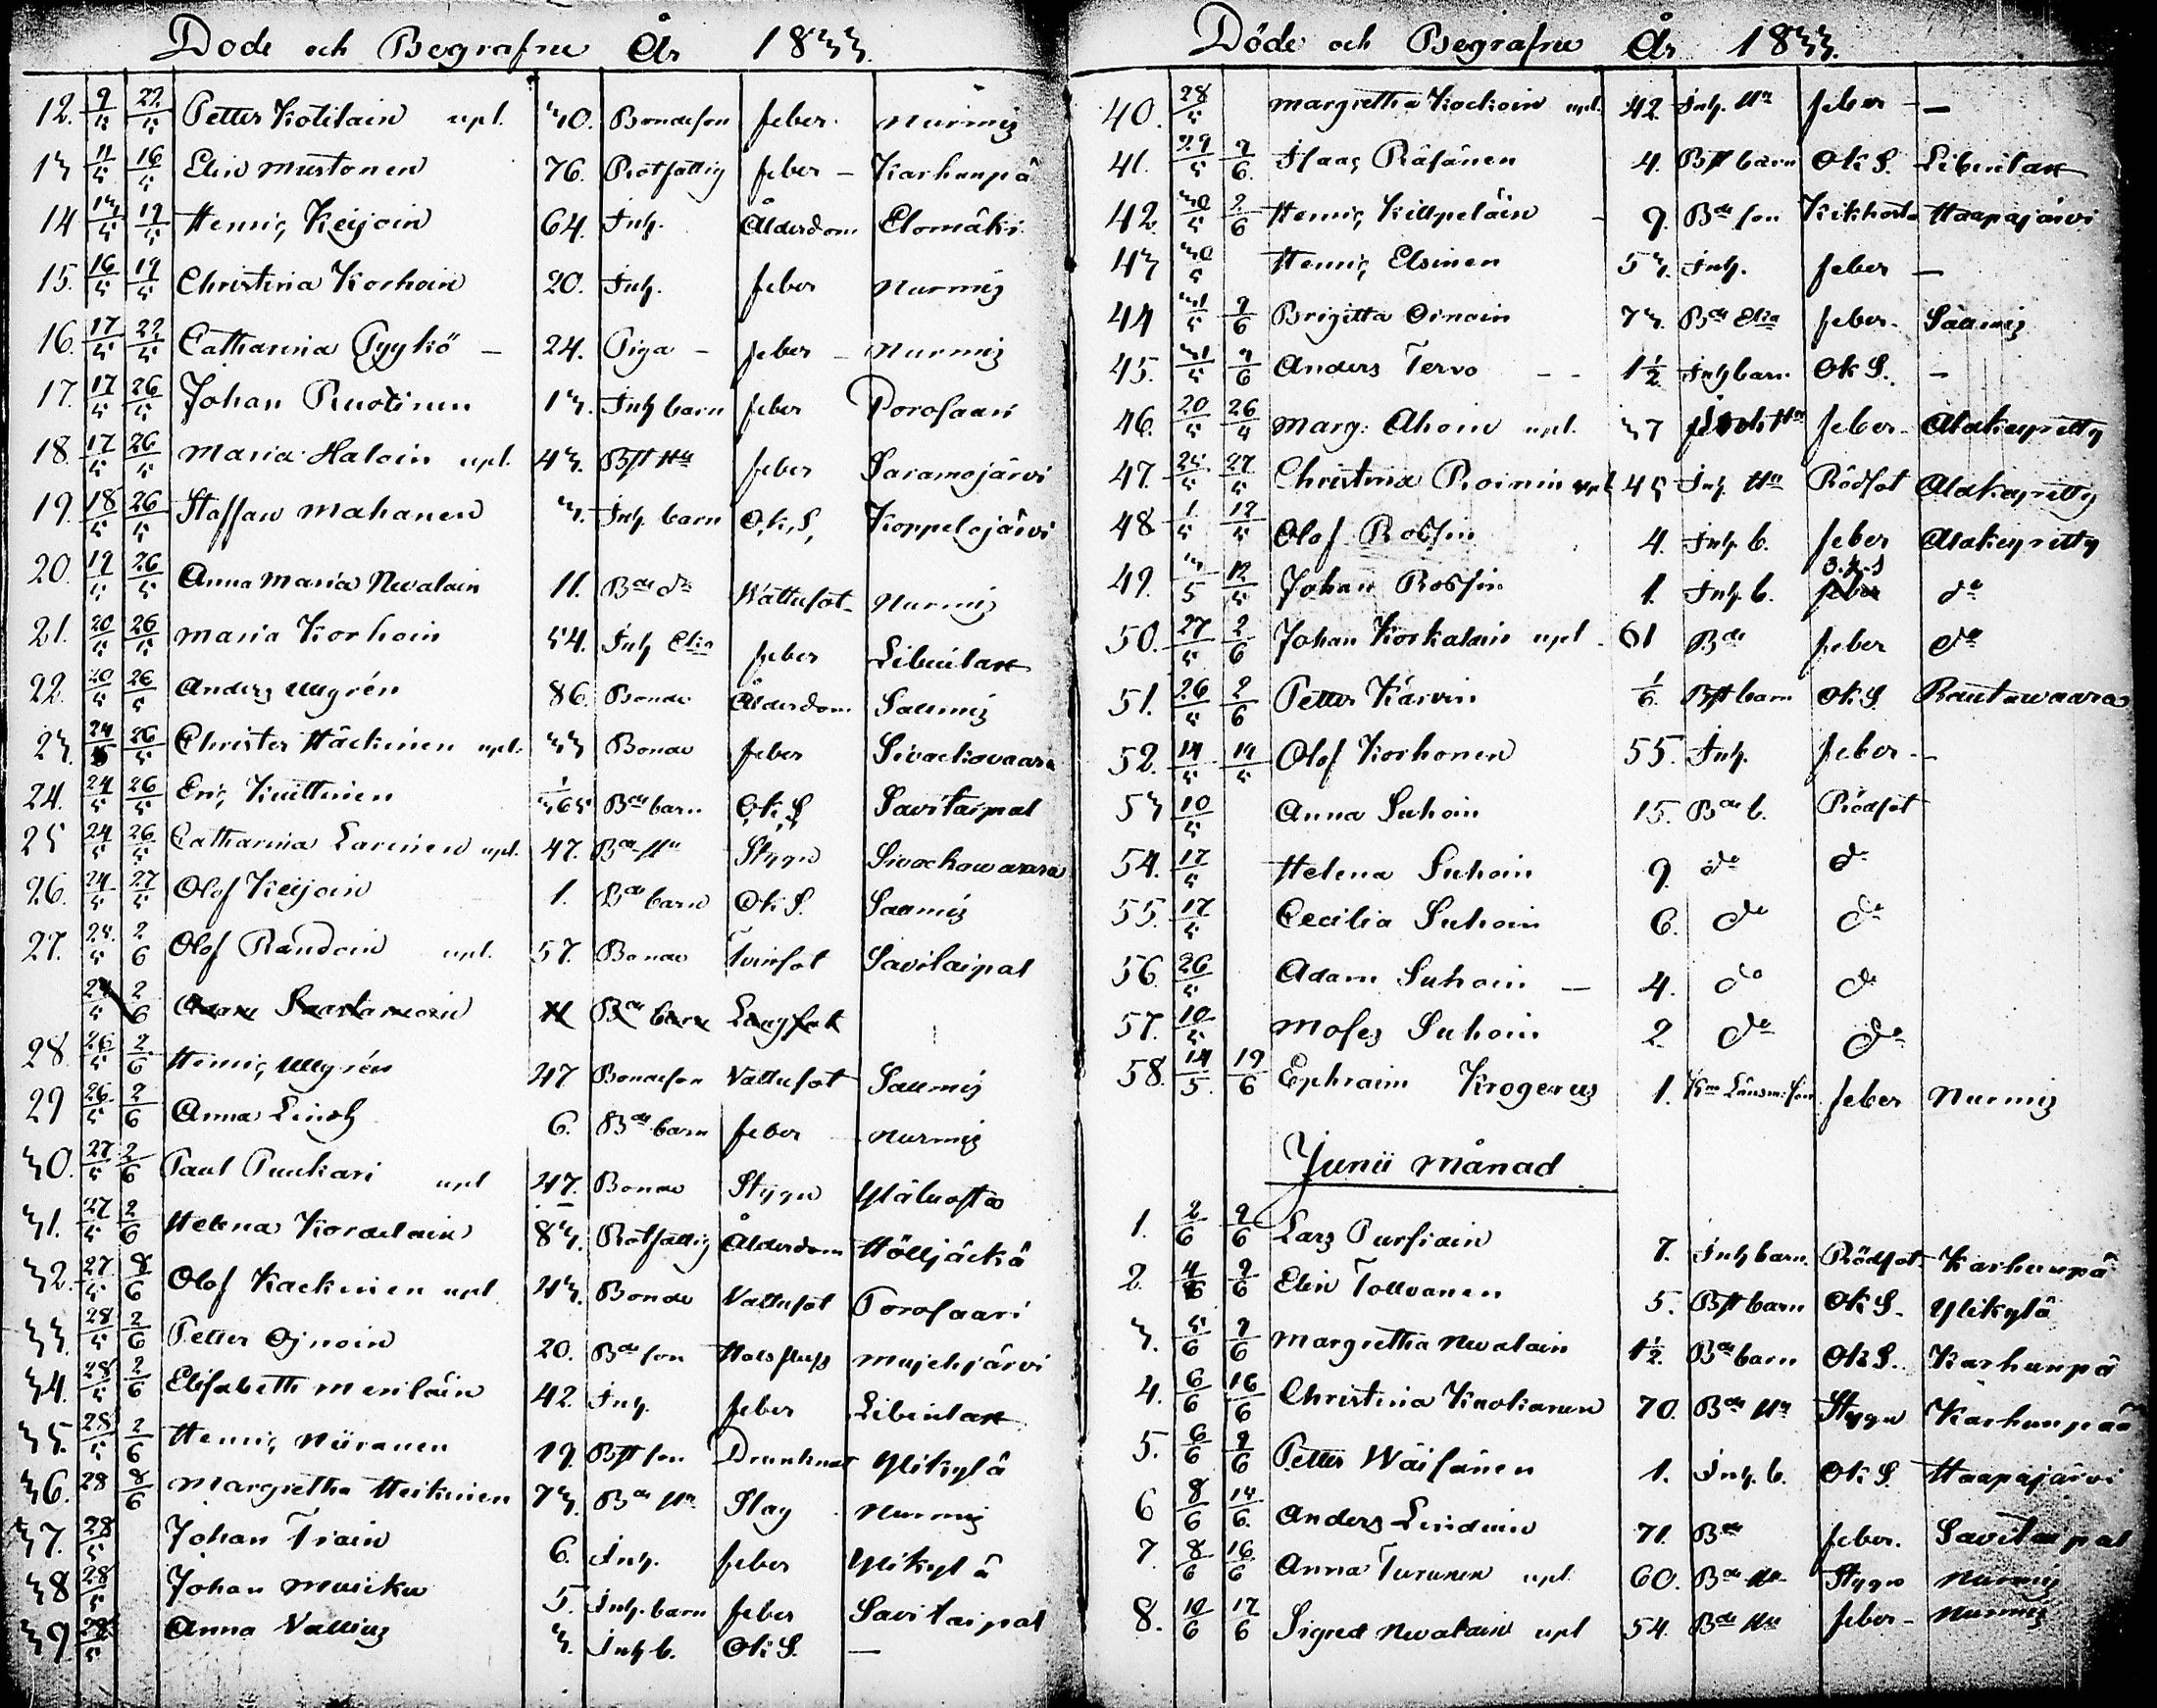 Döde och Begrafne År 1833.
12. 9/5 22/5 Petter Kotilain upl. 30. Bondeson feber. Nurmis
13 11/5 16/5 Elin Mustonen 76. Rotfattig feber - Karhunpä
14 13/5 19/5 Henric Keijoin 64. Inh. Ålderdom Elomäki
15. 16/5 19/5 Christina Korhoin 20. Inh. feber Nurmis
16. 17/5 22/5 Catharina Pyykö - 24. Piga - feber - Nurmis
17. 17/5 26/5 Johan Ruotinen 13. Inh barn feber Porosaari
18. 17/5 26/5 Maria Haloin upl. 43. Bst Hu feber Saramojärvi
19. 18/5 26/5 Staffan Mahanen 3. Inh. barn O.k.S. Koppelojärvi
20. 19/5 26/5 Anna Maria Nevalain 11. Bde dr Vattusot - Nurmis
21. 20/5 26/5 Maria Korhoin 54. Inh Eka feber Libeulax
22. 20/5 26/5 Anders Ullgrén 86. Bonde Ålderdom Saumis
23. 24/5 26/5 Christer Häckinen upl. 33 Bonde feber Sivackovaara
24. 24/5 26/5 Eric Kuittinen 1/365 Bde barn O.k.S. Savitaipal
25 24/5 26/5 Catharina Larinen upl. 47. Bde Hu Stygn Sivackowaara
26. 24/5 27/5 Olof Keijoin 1. Bde barn Ok S. Saumis
27. 25/5 2/6 Olof Ründoin upl. 57. Bonde Tvinsot Savitaipal
2/6 Bde barn Lungsot
28. 26/5 2/6 Henric Ullgrén 47 Bondeson Vattusot Saumis
29 26/5 2/6 Anna Lindh 6. Bde barn feber Nurmis
30. 27/5 2/6 Paul Puukari upl 47. Bonde Stygn Yläluosta
31. 27/5 2/6 Helena Kordelain 83. Rotfattig Ålderdom Hölljäckä
32. 27/5 8/6 Olof Kackinen upl 43. Bonde Vattusot Porosaari
33. 28/5 2/6 Petter Ojnoin 20. Bde son Halsfluss Mujehjärvi
34. 28/5 2/6 Elisabeth Meriläin 42. Inh. feber Libeulax
35. 28/5 2/6 Henric Niiranen 19. Bst son Drunknat Ylikylä
36. 28 8/6 Margretha Heikinen 73. Bde Hu Slag Nurmis
37. 28/5 Johan Train 6. Inh. feber Ylikylä
38 28/5 Johan Musicka 5. Inh. barn feber Savitaipal
39 28/5 Anna Vallius 3. Inh b. Ok S. —
Döde och Begrafne År 1833.
40. 28/5 Margretha Kockoin upl. 42. Inh. Hu feber —
41. 29/5 9/6 Isaac Räsänen 4. Bst barn Ok S. Libeulax
42. 30/5 2/6 Henric Killpeläin - 9. Bde son Kikhosta Haapajärvi
43 30/5 Henric Elsinen 53. Inh. feber —
44 31/5 9/6 Brigitta Oinoin 73. Bde Eka feber. Saumis
45. 31/5 9/6 Anders Tervo - - 1 1/2 Inh barn Ok S. -
46. 20/5 26/4 Marg: Ahoin upl. 37 feber - Alakeyritty
47. 25/5 27/5 Christina Roinin upl 45 Inh. Hu Rödsot Alakeyritty
48 1/5 12/5 Olof Rossin 4. Inh. b. feber Alakeyritty
49. 3/5 12/5 Johan Rossin 1. Inh. b. O.k.S do
50. 27/5 2/6 Johan Koskalain upl - 61 Bde feber do
51. 26/5 2/6 Petter Kärvin 1/6. Bst barn Ok S. Rautawaara
52. 14/5 19/5 Olof Korhonen 55. Inh. feber - -
53 10/5 Anna Suhoin 15. Bde b. Rödsot
54. 17/5 Helena Suhoin 9. do do
55. 17/5 Cecilia Suhoin 6. do do
56 26/5 Adam Suhoin — 4. do do
57. 10/5 Moses Suhoin 2 do do
58. 14/5 19/6 Ephraim Krogerus 1. Kro Länsm: son feber Nurmis
Junii Månad
1. 2/6 9/6 Lars Pursiain 7. Inh barn. Rödsot - Karhunpä
2. 4/6 9/6 Elin Tollvanen 5. Bst barn Ok S. Ylikylä
3. 5/6 9/6 Margretha Nevalain 1 1/2. Bde barn Ok S. Karhunpä
4. 6/6 16/6 Christina Kuokanen 70. Bde Hu Stygn Karhunpää
5. 6/6 9/6 Petter Wäisänen 1. Inh. b. Ok S. Haapajärvi
6 8/6 14/6 Anders Lindain 71. Bde feber. Savitaipal
7. 8/6 16/6 Anna Turunen upl. 60. Bde Hu Stygn Nurmis
8. 10/6 17/6 Sigred Nevalain upl 54. Bde Hu feber - Nurmis